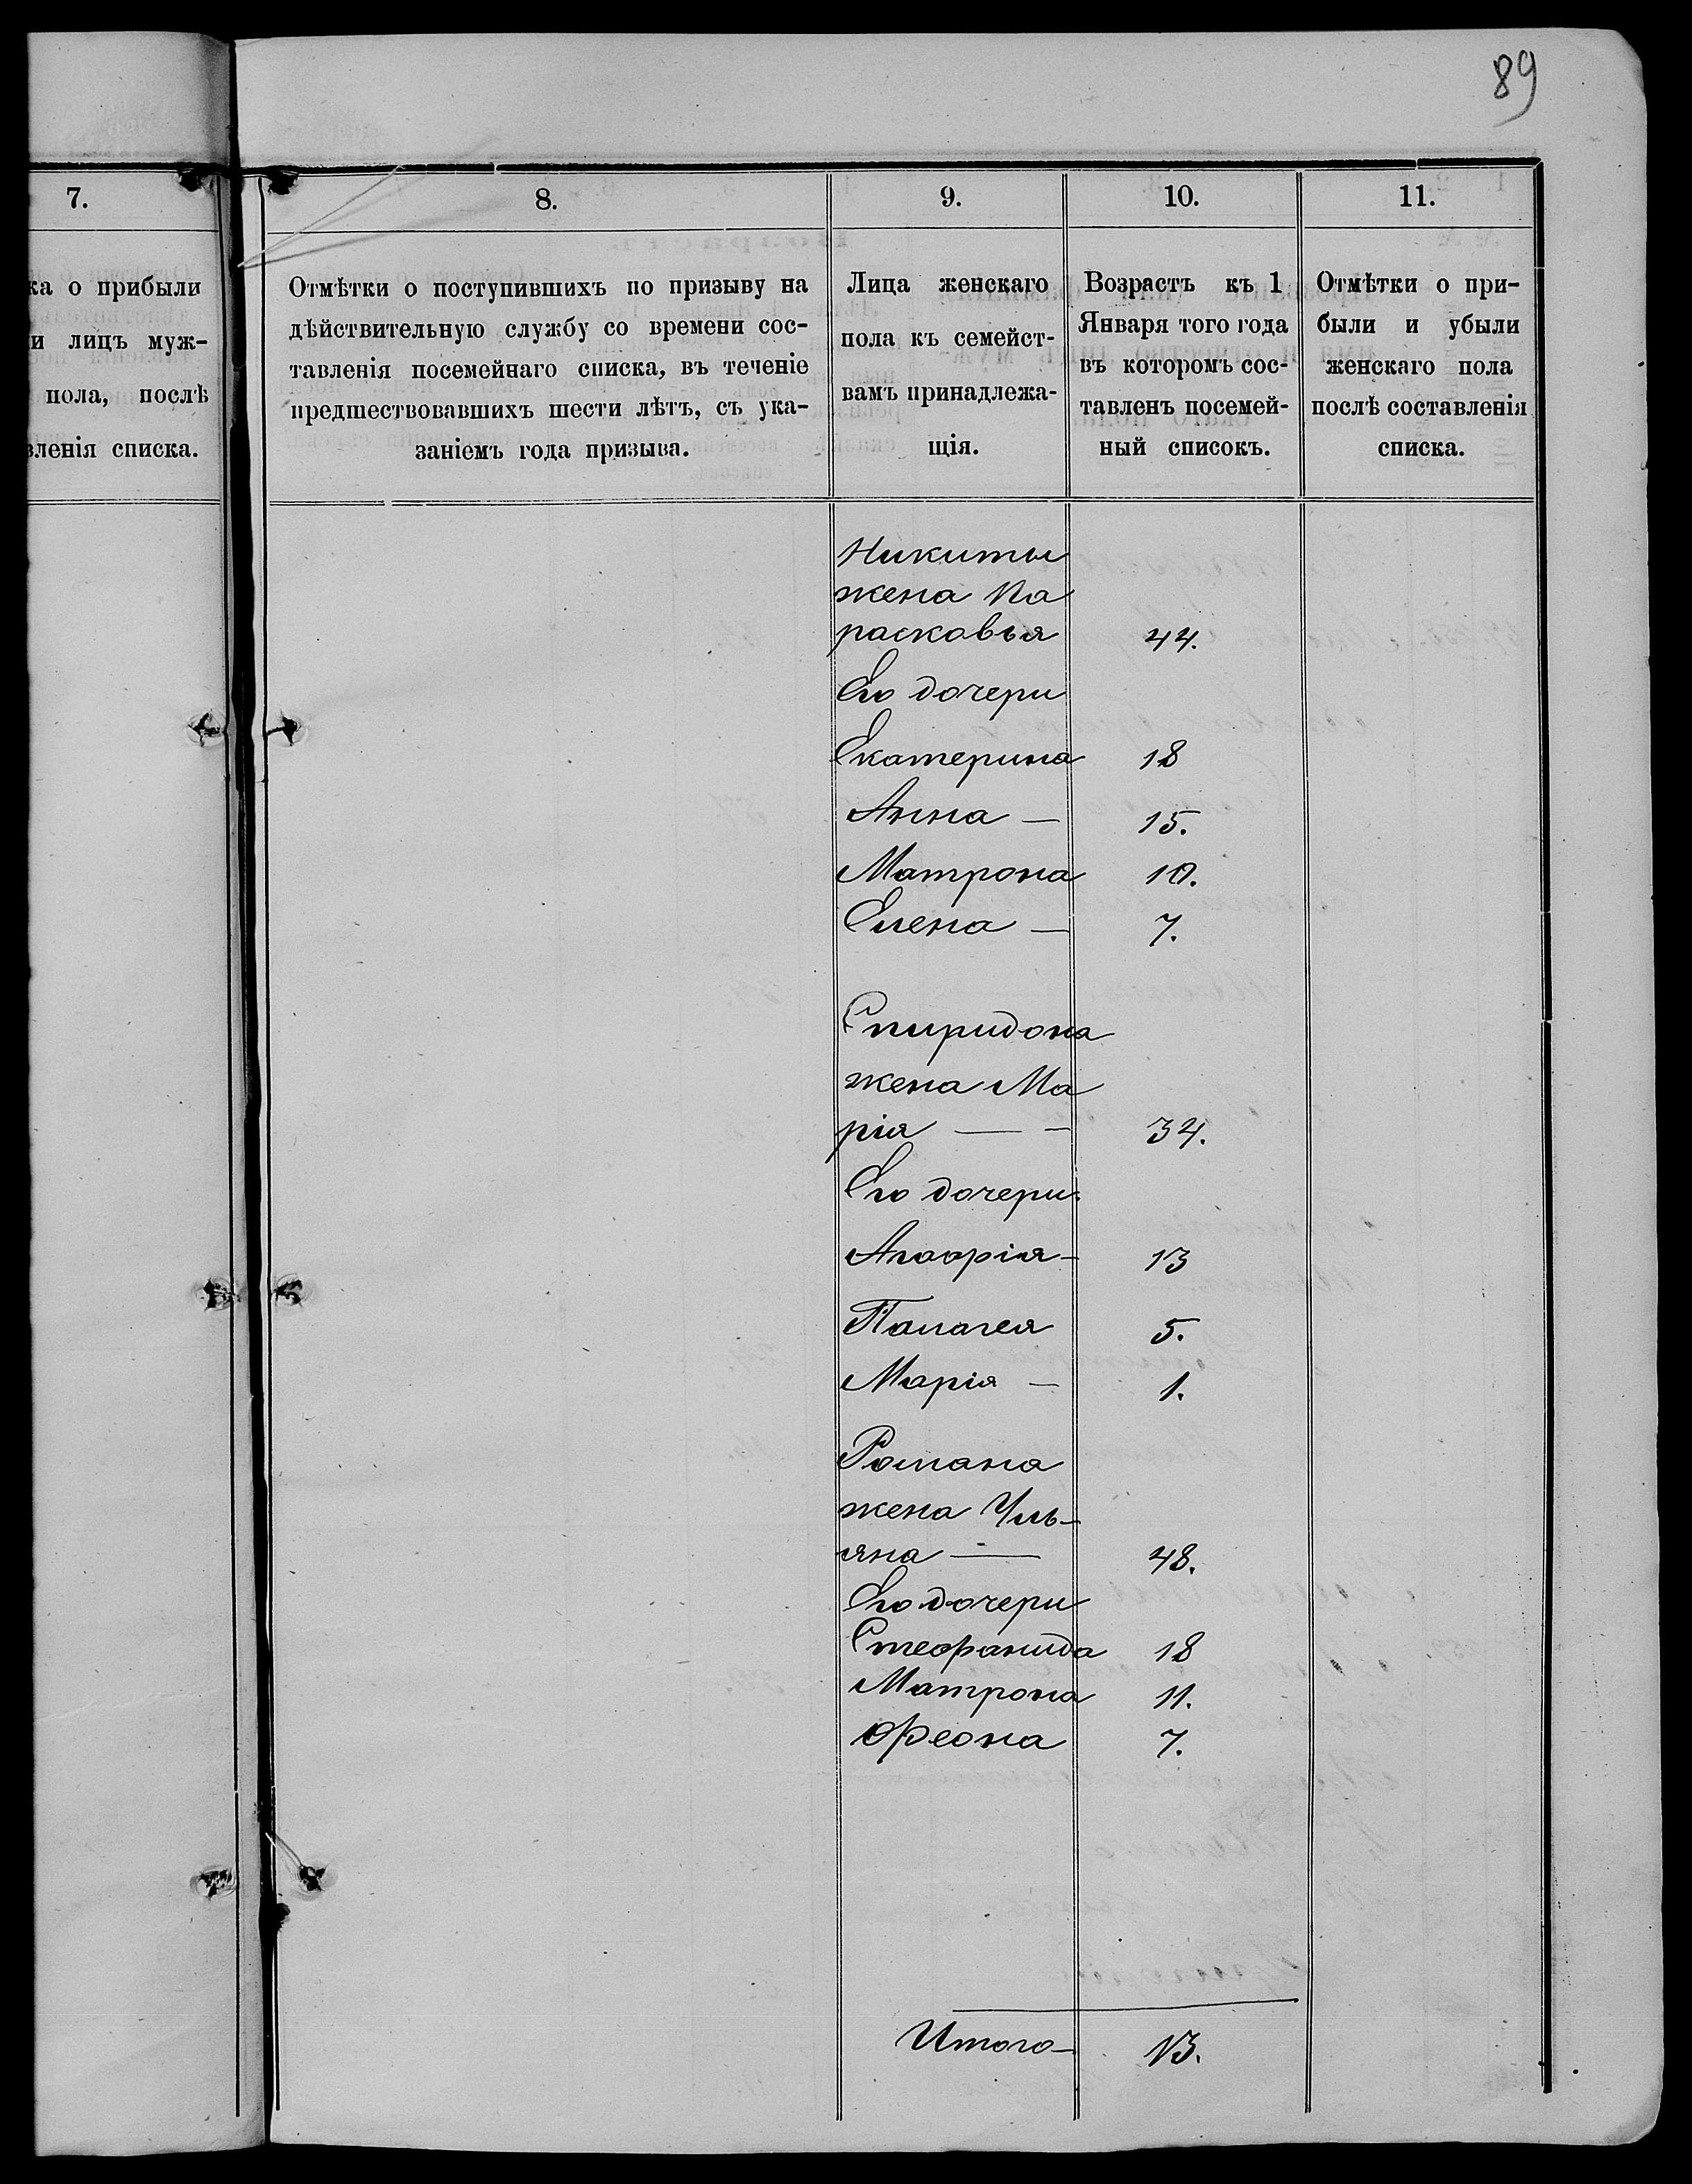 89
7.
ка о прибыли
и лицъ муж-
пола, послѣ
вленія списка.
8.
Отмѣтки о поступившихъ по призыву на
дѣйствительную службу со времени сос-
тавленія посемейнаго списка, въ теченіе
предшествовавшихъ шести лѣтъ, съ ука-
заніемъ года призыва.
9.
Лица женскаго
пола къ семейст-
вамъ принадлежа-
щія.
10.
Возрастъ къ 1
Января того года
въ которомъ сос-
тавленъ посемей-
ный списокъ.
11.
Отмѣтки о при-
были и убыли
женскаго пола
послѣ составленія
списка.
Никиты
жена Па
расковья 44.
Его дочери
Екатерина 18
Анна — 15.
Матрона 10.
Елена — 7.
Спиридона
жена Ма
рія — — 34.
Его дочери
13
Палагея 5.
Марія — 1.
Романа
жена Уль-
яна — 48.
Его дочери
Стефанида 18
Матрона 11.
Феона 7.
Итого — 13.